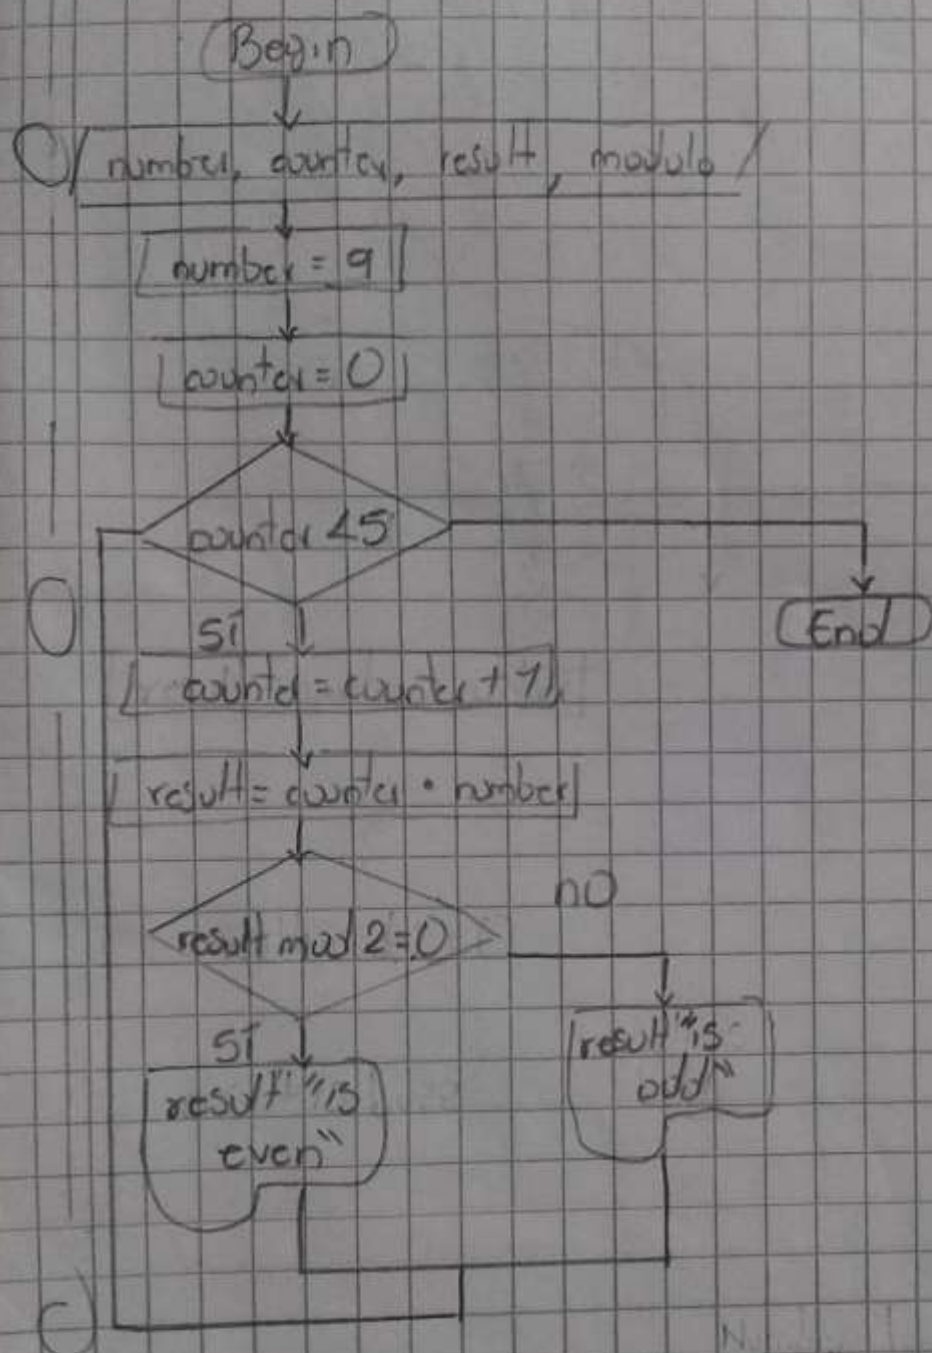 Begin
number, counter, result, modulo
number = 9
counter = 0
counter < 5
End
SI
counter = counter + 1
result = counter · number
no
result mod 2 = 0
SI
result "is
odd"
result "is
even"